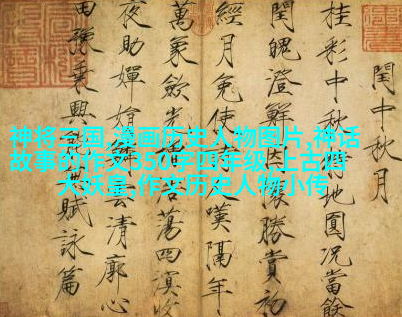 閏中秋月
桂彩中秋地圓況當餘
閏魄澄鮮因懷勝賞初
經月免使嘆隔年
萬象斂光蕩四溟收
夜助嬋娟雲清廓心
田豫乘興賦詠篇
神将三国,漫画历史人物图片,神话
故事的作文350字四年级,上古四
大妖皇,作文历史人物小传